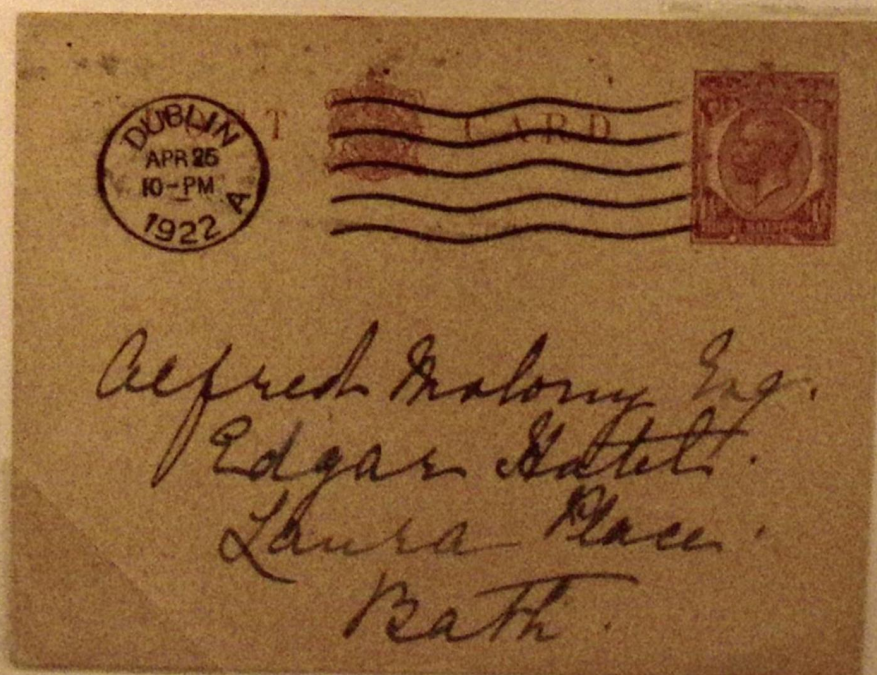 T CARD
DUBLIN
APR 25
10-PM
A
1922
Alfred Molony Esq.
Edgar Hotel.
Laura Place.
Bath.